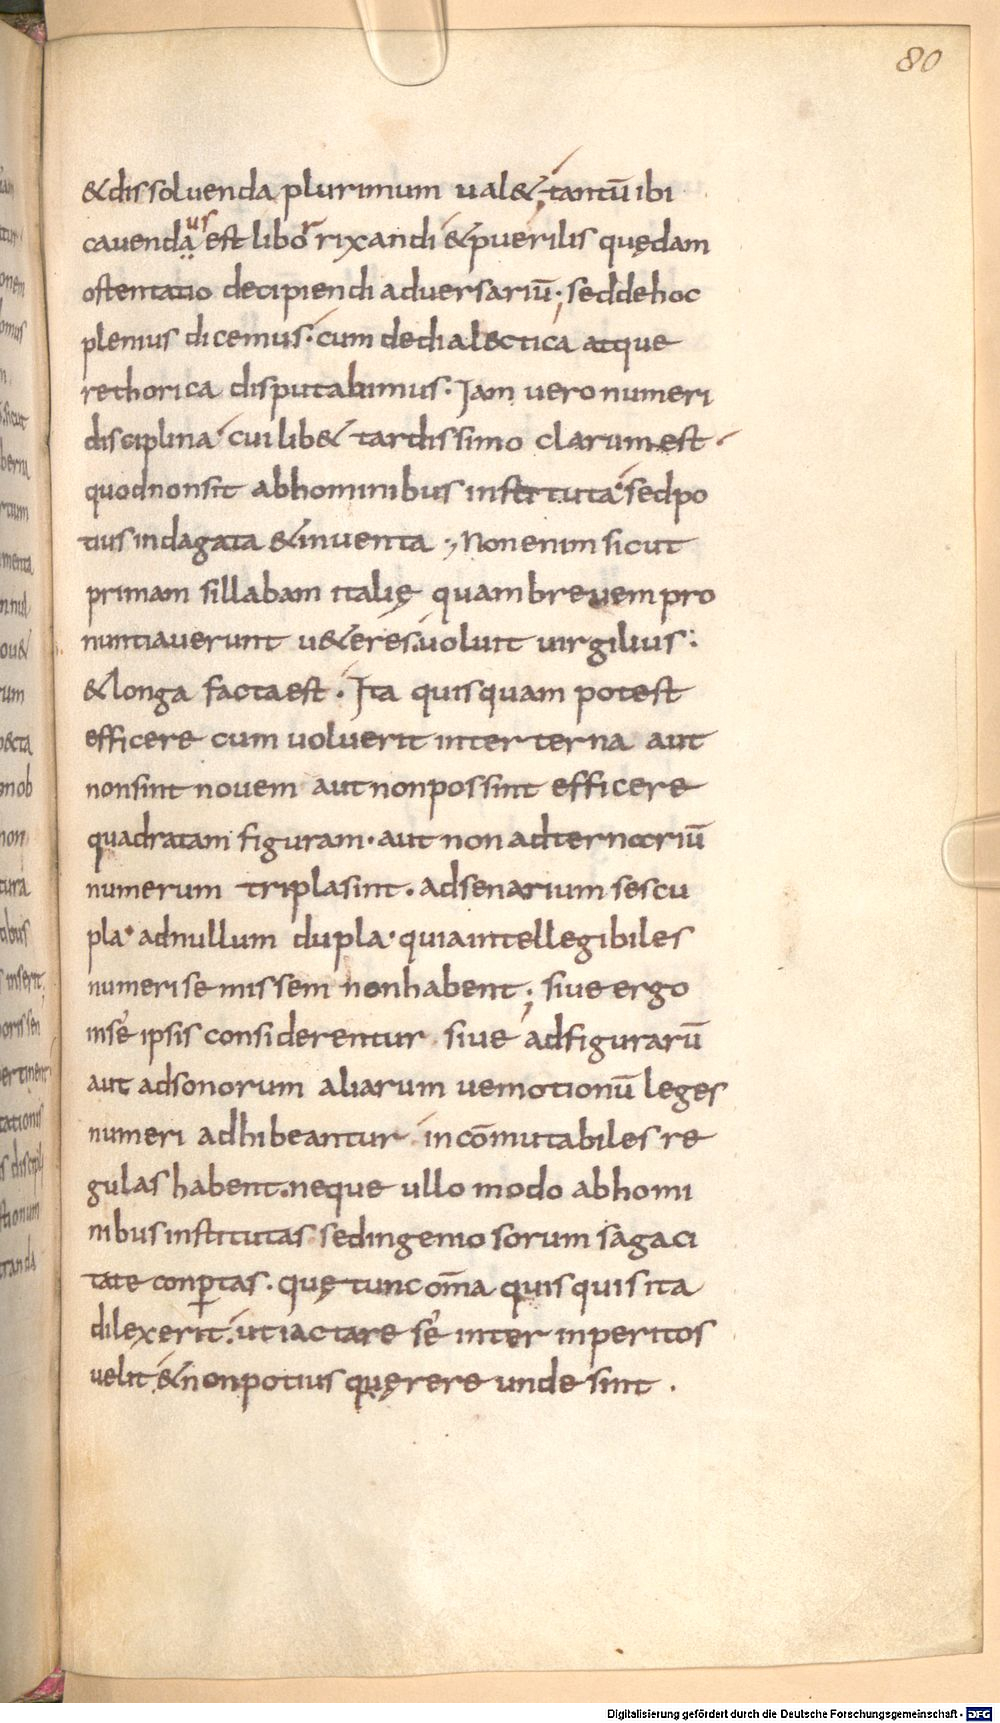 80
& dissoluenda plurimum ual&; tantū ibi
cauendaus est libor rixandi & puerilis quędam
ostentatio decipiendi aduersariū; sed de hoc
plenius dicemus· cum de dialectica atque
rethorica disputabimus· Iam uero numeri
disciplina· cuilib& tardissimo clarum est·
quod non sit ab hominibus instituta· sed po
tius indagata & inuenta·, Non enim sicut
primam sillabam italię quam breuem pro
nuntiauerunt u&eres· uoluit uirgilius:
& longa facta est· Ita quisquam potest
efficere cum uoluerit inter terna aut
non sint nouem aut non possint efficere
quadratam figuram· aut non ad ternariū
numerum tripla sint· ad senarium sescu
pla· ad nullum dupla· quia intellegibiles
numeri semissem non habent; siue ergo
in se ipsis considerentur siue ad figurarū
aut ad sonorum aliarum ue motionū leges
numeri adhibeantur incōmutabiles re
gulas habent· neque ullo modo ab homi
nibus institutas sed ingeniosorum sagaci
tate conꝑtas· quę tunc om̄a quisquis ita
dilexerit· ut iactare se inter inperitos
uelit & non potius quęrere unde sint·
Digitalisierung gefördert durch die Deutsche Forschungsgemeinschaft - DFG